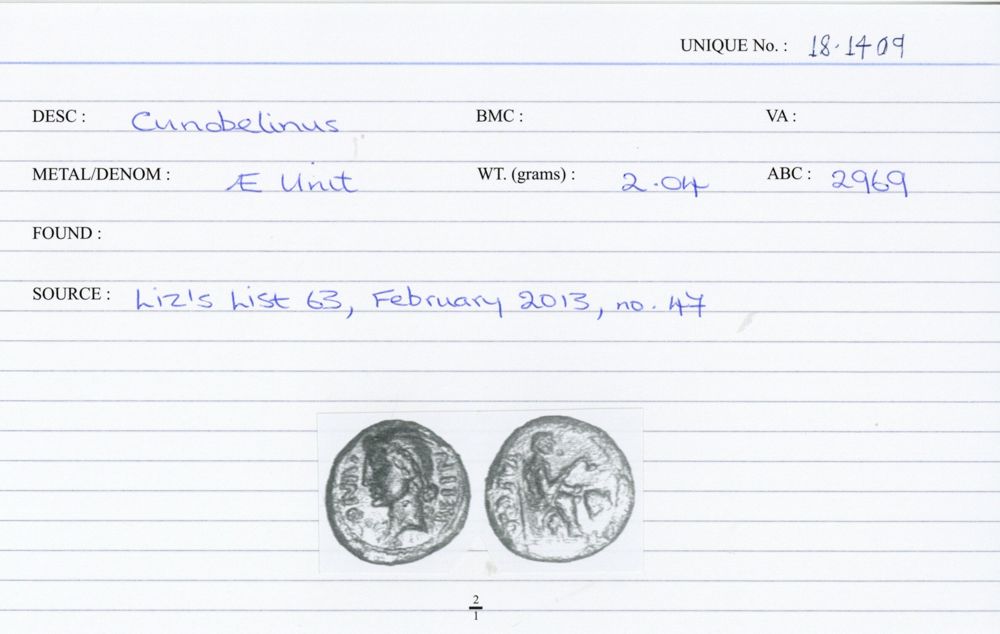 UNIQUE No. : 18.1409
DESC : Cunobelinus BMC : VA :
METAL/DENOM : Æ Unit WT. (grams) : 2.04 ABC : 2969
FOUND :
SOURCE : Liz's List 63, February 2013, no. 47
2
1